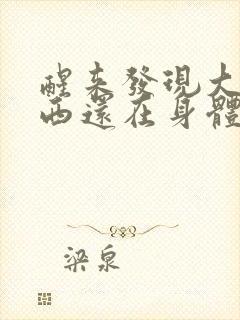 醒来發現大
西還在身體
梁泉